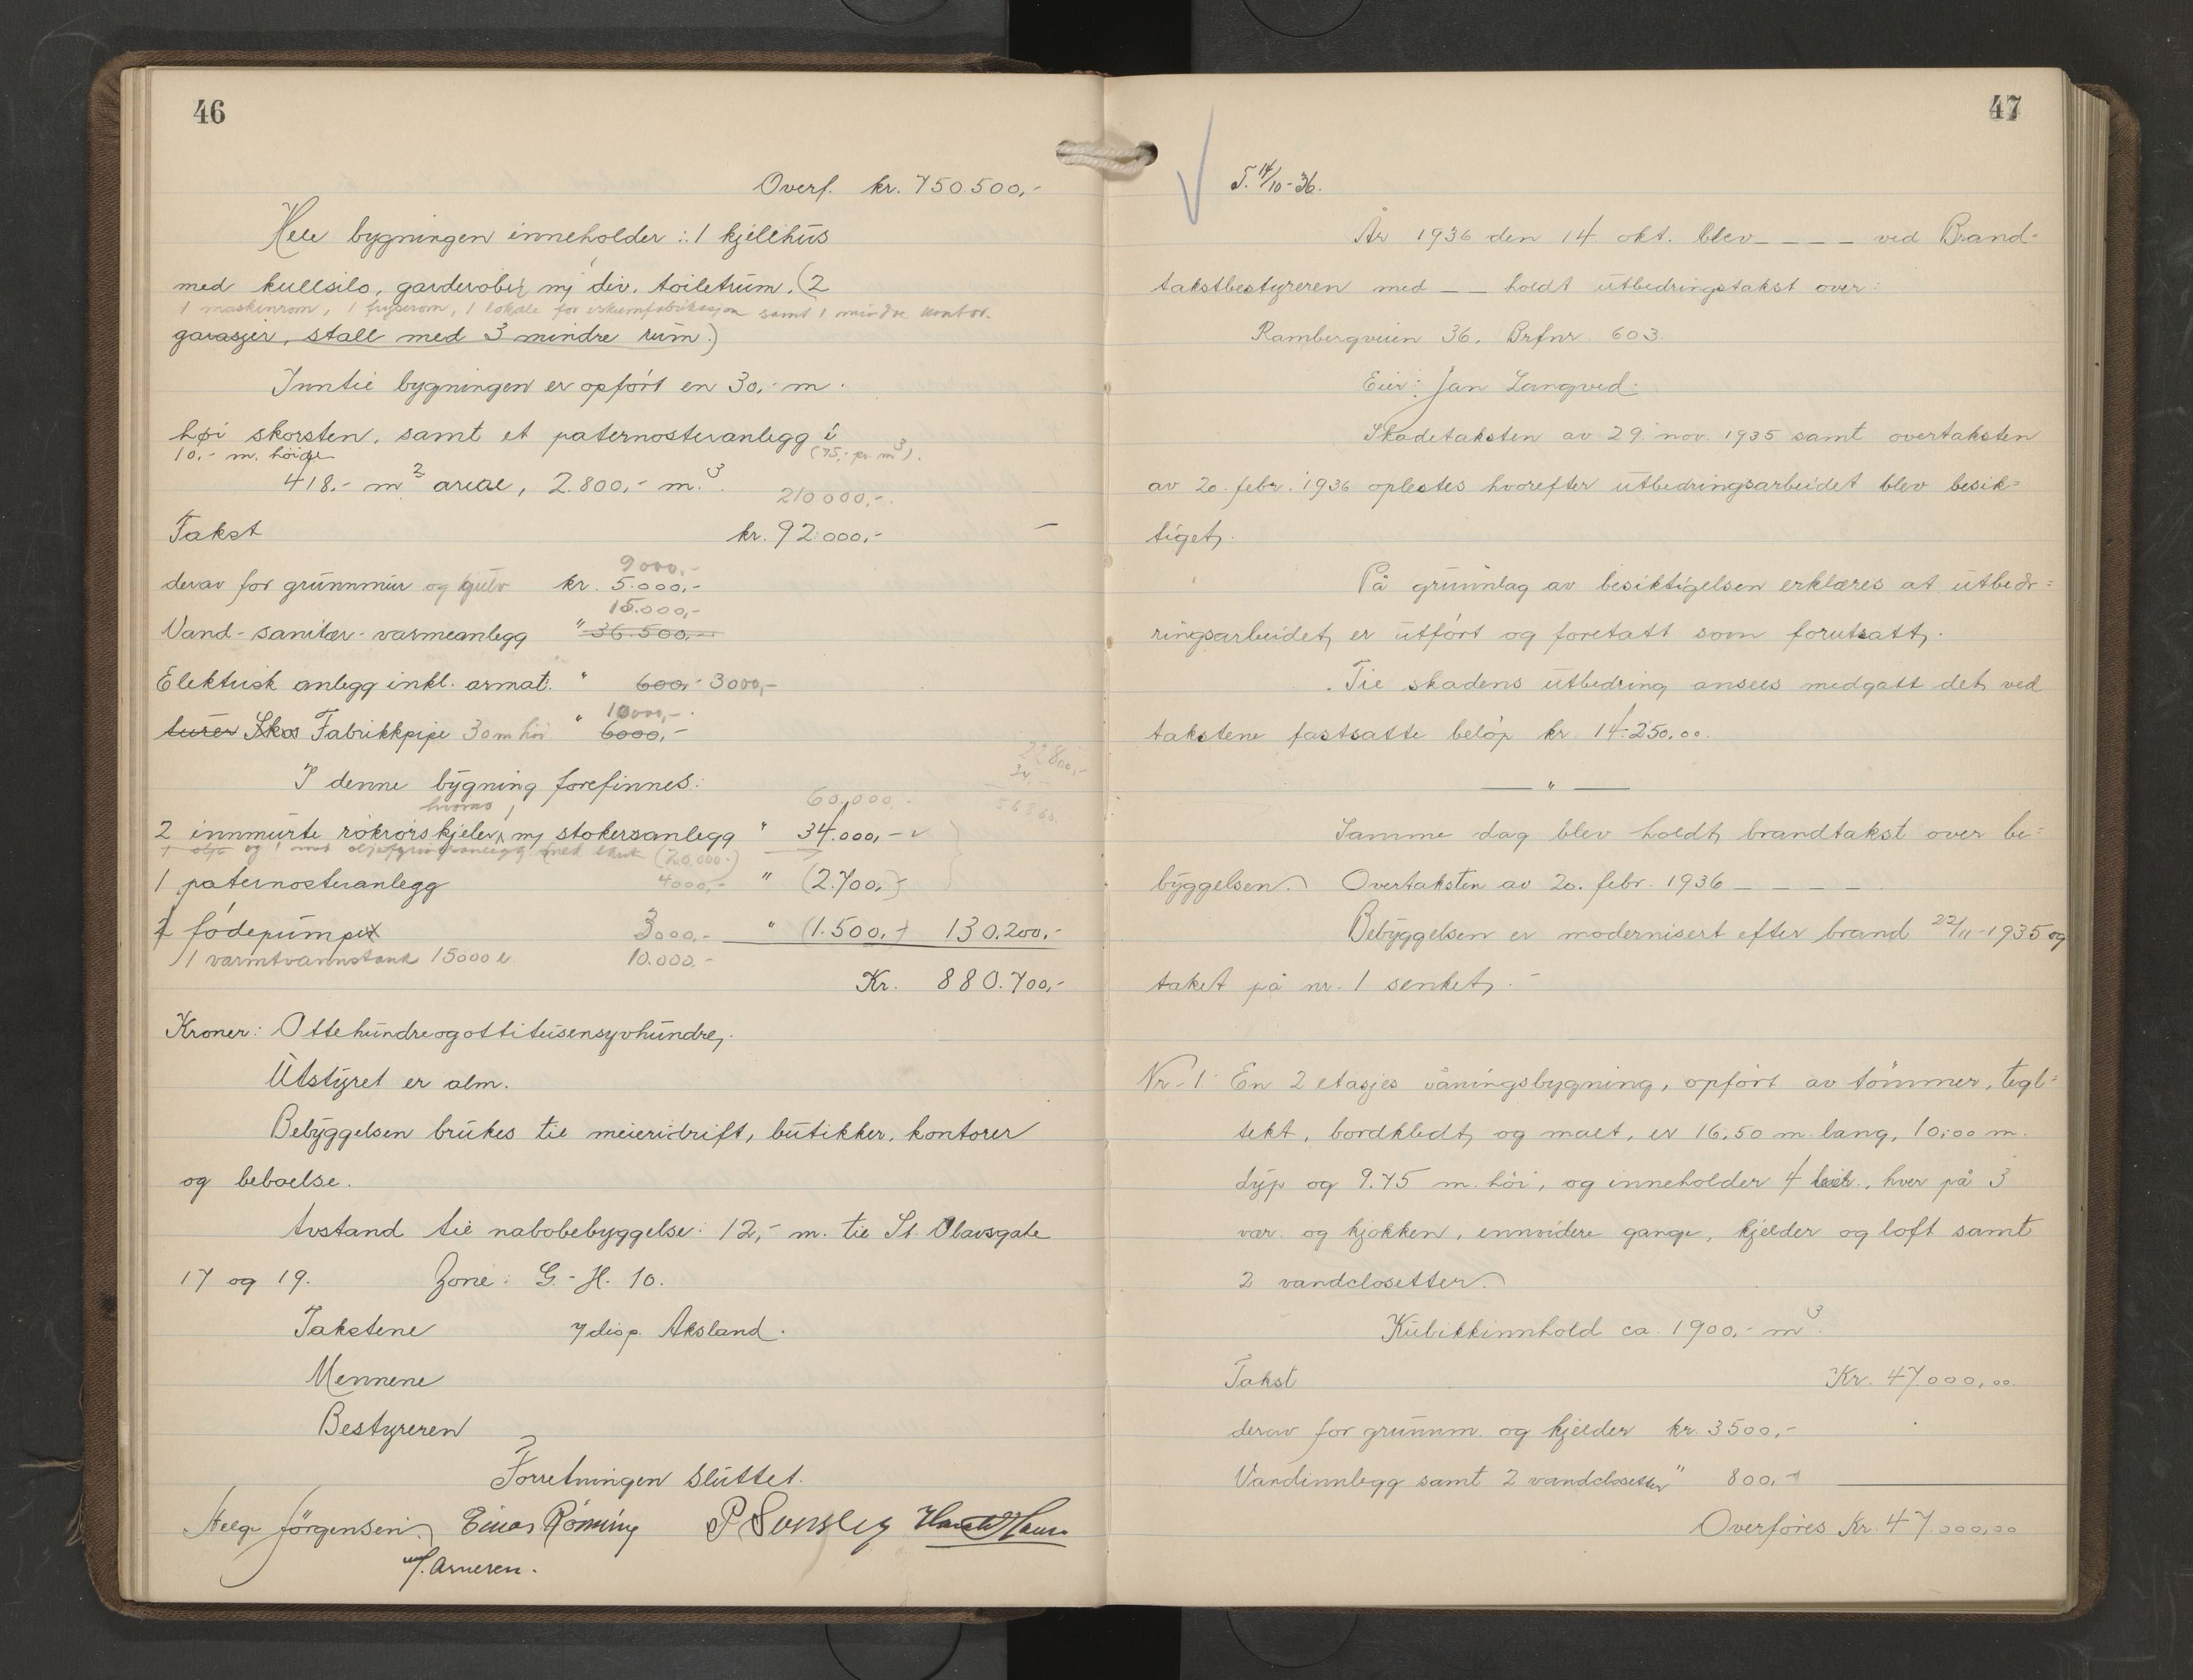 46
Overf. kr. 750.500,-
Hele bygningen inneholder: 1 kjelehus
med kullsilo, garderober m/ div. toiletrum. (2
1 maskinrom, 1 fryserom, 1 lokale for iskremfabrikasjon samt 1 mindre kontor.
garasjer, stall med 3 mindre rum.)
Inntil bygningen er opført en 30,- m.
høi skorsten, samt et paternosteranlegg i
10,- m. høide (75,- pr. m³).
418,- m² areal, 2.800,- m.³
210000,-
Takst kr. 92.000,-
9000,-
derav for grunnmur og gulv kr. 5.000,-
15.000,-
Vand- sanitær- varmeanlegg " 36.500,-
Elektrisk anlegg inkl. armat. " 600,- 3000,-
10000,-
turer Skos Fabrikkpipe 30 m høi " 6000,-
I denne bygning forefinnes:
hvorav 60.000,-
2 innmurte rökrörskjeler, m/ stokersanlegg " 34.000,-
(20.000.-)
1 paternosteranlegg 4000,- " (2.700,-)
2 födepumper 3000,- " (1.500,-) 130.200,-
1 varmtvannstank 15000 l. 10.000.-
Kr. 880.700,-
Kroner: Ottehundreogottitusensyvhundre,.
Utstyret er alm.
Bebyggelsen brukes til meieridrift, butikker, kontorer
og beboelse.
Avstand til nabobebyggelse: 12,- m. til St. Olavsgate
17 og 19. Zone: G.-H. 10.
Takstene disp. Aksland.
Mennene
Bestyreren
Forretningen sluttet.
Helge Jörgensen Einar

47
T. 14/10-36.
År 1936 den 14. okt. blev _ _ _ _ ved Brand-
takstbestyreren med _ _ holdt utbedringstakst over:
Rambergveien 36. Brfnr. 603.
Eier: Jan Langved.
Skadetaksten av 29. nov. 1935 samt overtaksten
av 20. febr. 1936 oplestes hvorefter utbedringsarbeidet blev besik-
tiget,.
På grunnlag av besiktigelsen erklæres at utbed-
ringsarbeidet, er utført og foretatt som forutsatt,.
Til skadens utbedring ansees medgatt det, ved
takstene fastsatte beløp kr. 14.250.00.
— " —
Samme dag blev holdt, brandtakst over be-
byggelsen. Overtaksten av 20. febr. 1936 _ _ _ _ .
Bebyggelsen er modernisert efter brand 22/11-1935 og
taket på nr. 1 senket,.-
Nr. 1. En 2 etasjes våningsbygning, opført av tömmer, tegl-
tekt, bordkledt, og malt, er 16,50 m. lang, 10,00 m.
dyp og 9.75 m. höi, og inneholder 4 leil., hver på 3
vær. og kjøkken, ennvidere gange, kjelder og loft samt
2 vandclosetter.
Kubikkinnhold ca. 1900,- m³.
Takst Kr. 47.000,00.
derav for grunnm. og kjelder kr. 3500,-
Vandinnlegg samt 2 vandclosetter " 800,-
Overføres Kr. 47.000,00